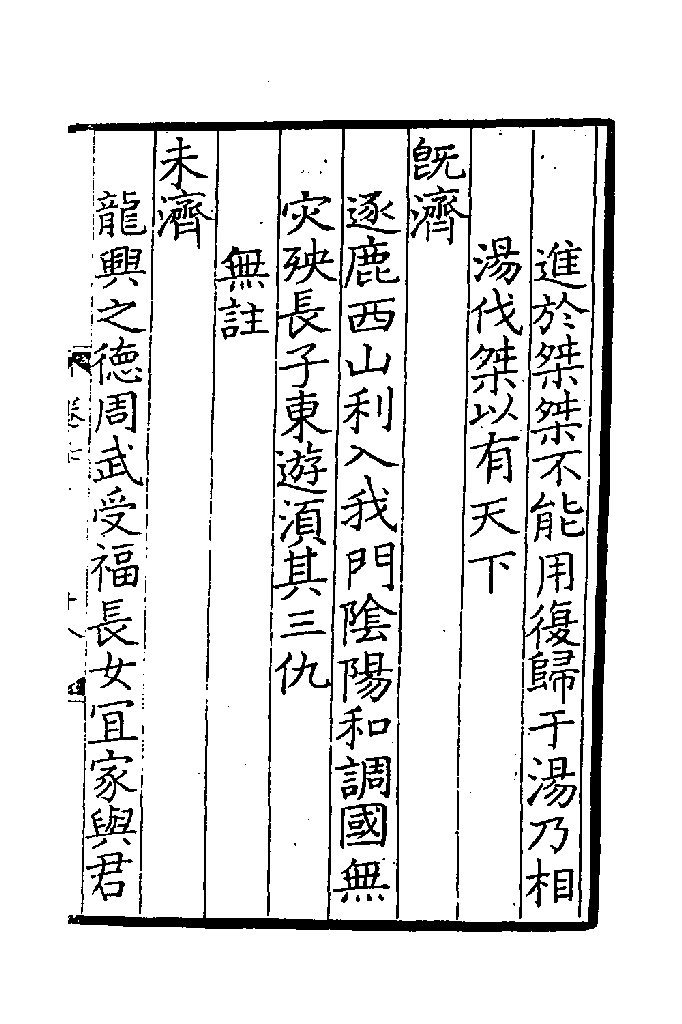 進於桀桀不能用復歸于湯乃相
湯伐桀以有天下
旣濟
逐鹿西山利入我門隂陽和調國無
灾殃長子東遊湏其三仇
無註
未濟
龍興之德周武受福長女冝家與君